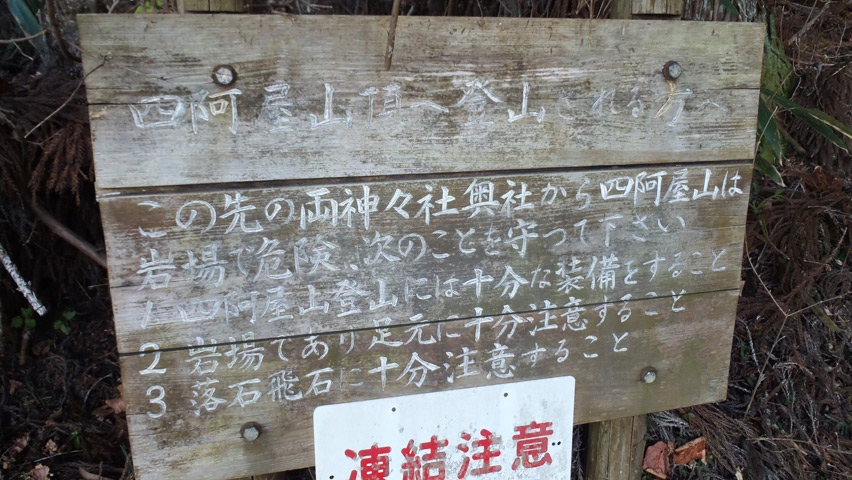 四阿屋山頂へ登山される方へ
この先の両神々社奥社から四阿屋山は
岩場で危険、次のことを守って下さい
1 四阿屋山登山には十分な装備をすること
2 岩場であり足元に十分注意すること
3 落石飛石に十分注意すること
凍結注意